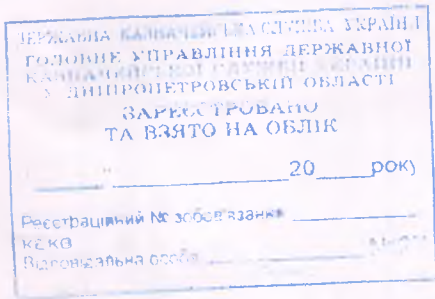 ДЕРЖАВНА КАЗНАЧЕЙСЬКА СЛУЖБА УКРАЇНИ
ГОЛОВНЕ УПРАВЛІННЯ ДЕРЖАВНОЇ
КАЗНАЧЕЙСЬКОЇ СЛУЖБИ УКРАЇНИ
У ДНІПРОПЕТРОВСЬКІЙ ОБЛАСТІ
ЗАРЕЄСТРОВАНО
ТА ВЗЯТО НА ОБЛІК
"____" ____________20____року
Реєстраційний № зобов'язання ________
КЕКВ
Відповідальна особа ____________